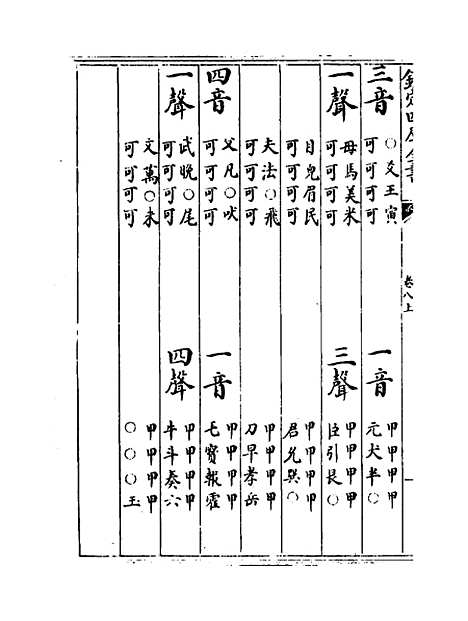 欽定四庫全書
卷八上
三音
○爻王寅
可可可可
一音
甲甲甲甲
元犬半○
一聲
母馬美米
可可可可
三聲
甲甲甲甲
臣引艮○
目皃眉民
可可可可
甲甲甲甲
君允巽○
夫法○飛
可可可可
甲甲甲甲
刀早孝岳
四音
父凡○吠
可可可可
一音
甲甲甲甲
毛寶報霍
一聲
武晚○尾
可可可可
四聲
甲甲甲甲
牛斗奏六
文萬○未
可可可可
甲甲甲甲
○○○玉